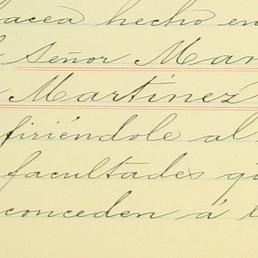 hacea hecho en
Señor Man
Martinez
firiéndole al
facultades qu
conceden á l